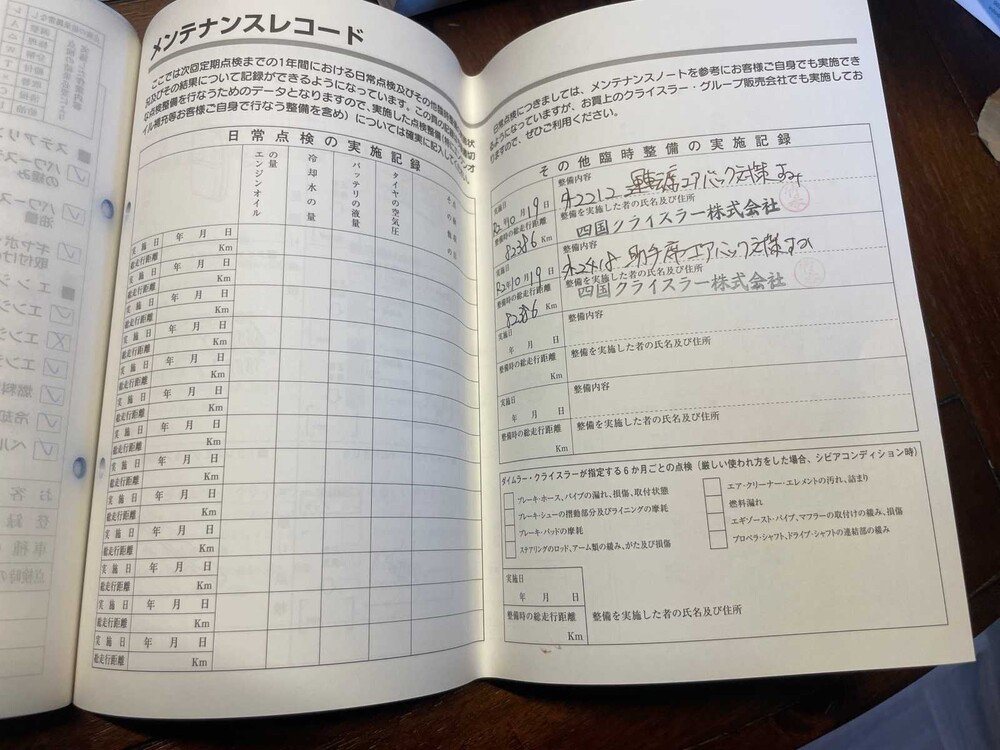 メンテナンスレコード
ここでは次回定期点検までの1年間における日常点検及びその他臨時整備の実施状
況及びその結果について記録ができるようになっています。この頁の記録は、適切
な点検整備を行なうためのデータとなりますので、実施した点検整備(特にエンジンオ
イル補充等お客様ご自身で行なう整備を含め)については確実に記入してください。
日常点検の実施記録
エンジンオイルの量
冷却水の量
バッテリの液量
タイヤの空気圧
実施日 年 月 日
総走行距離 Km
実施日 年 月 日
総走行距離 Km
実施日 年 月 日
総走行距離 Km
実施日 年 月 日
総走行距離 Km
実施日 年 月 日
総走行距離 Km
実施日 年 月 日
総走行距離 Km
実施日 年 月 日
総走行距離 Km
実施日 年 月 日
総走行距離 Km
実施日 年 月 日
総走行距離 Km
実施日 年 月 日
総走行距離 Km
実施日 年 月 日
総走行距離 Km
実施日 年 月 日
総走行距離 Km
日常点検につきましては、メンテナンスノートを参考にお客様ご自身でも実施でき
るようになっていますが、お買上のクライスラー・グループ販売会社でも実施してお
りますので、ぜひご利用ください。
その他臨時整備の記録
実施日
R2年10月19日
整備内容
42212 運転席エアバック交換すみ
整備時の総走行距離
82386 Km
整備を実施した者の氏名及び住所
四国クライスラー株式会社
実施日
R2年10月19日
整備内容
42418 助手席エアバック交換すみ
整備時の総走行距離
82386 Km
整備を実施した者の氏名及び住所
四国クライスラー株式会社
実施日
年 月 日
整備内容
整備時の総走行距離
Km
整備を実施した者の氏名及び住所
実施日
年 月 日
整備内容
整備時の総走行距離
Km
整備を実施した者の氏名及び住所
ダイムラー・クライスラーが指定する6か月ごとの点検(厳しい使われ方をした場合、シビアコンディション時)
ブレーキ・ホース、パイプの漏れ、損傷、取付状態
ブレーキ・シューの摺動部分及びライニングの摩耗
ブレーキ・パッドの摩耗
ステアリングのロッド、アーム類の緩み、がた及び損傷
エア・クリーナー・エレメントの汚れ、詰まり
燃料漏れ
エギゾースト・パイプ、マフラーの取付けの緩み、損傷
プロペラ・シャフト、ドライブ・シャフトの連結部の緩み
実施日
年 月 日
整備時の総走行距離
Km
整備を実施した者の氏名及び住所